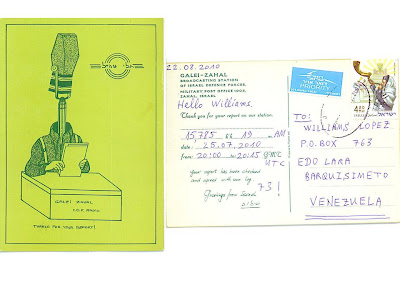 GALEI ZAHAL
I.D.F. RADIO
THANKS FOR YOUR SUPPORT!
22.08.2010
GALEI-ZAHAL
BROADCASTING STATION
OF ISRAEL DEFENCE FORCES,
MILITARY POST OFFICE 
ZAHAL, ISRAEL
Hello Williams,
Thank you for your report on our station.
15785 19 AM
date: 25.07.2010
from: 20:00 to 20:15
UTC
Your report has been checked
and agreed with our log.
73!
Greetings from Israel
PRIORITY
ישראל
TO:
WILLIAMS LOPEZ
P.O.BOX 763
EDO LARA
BARQUISIMETO
VENEZUELA